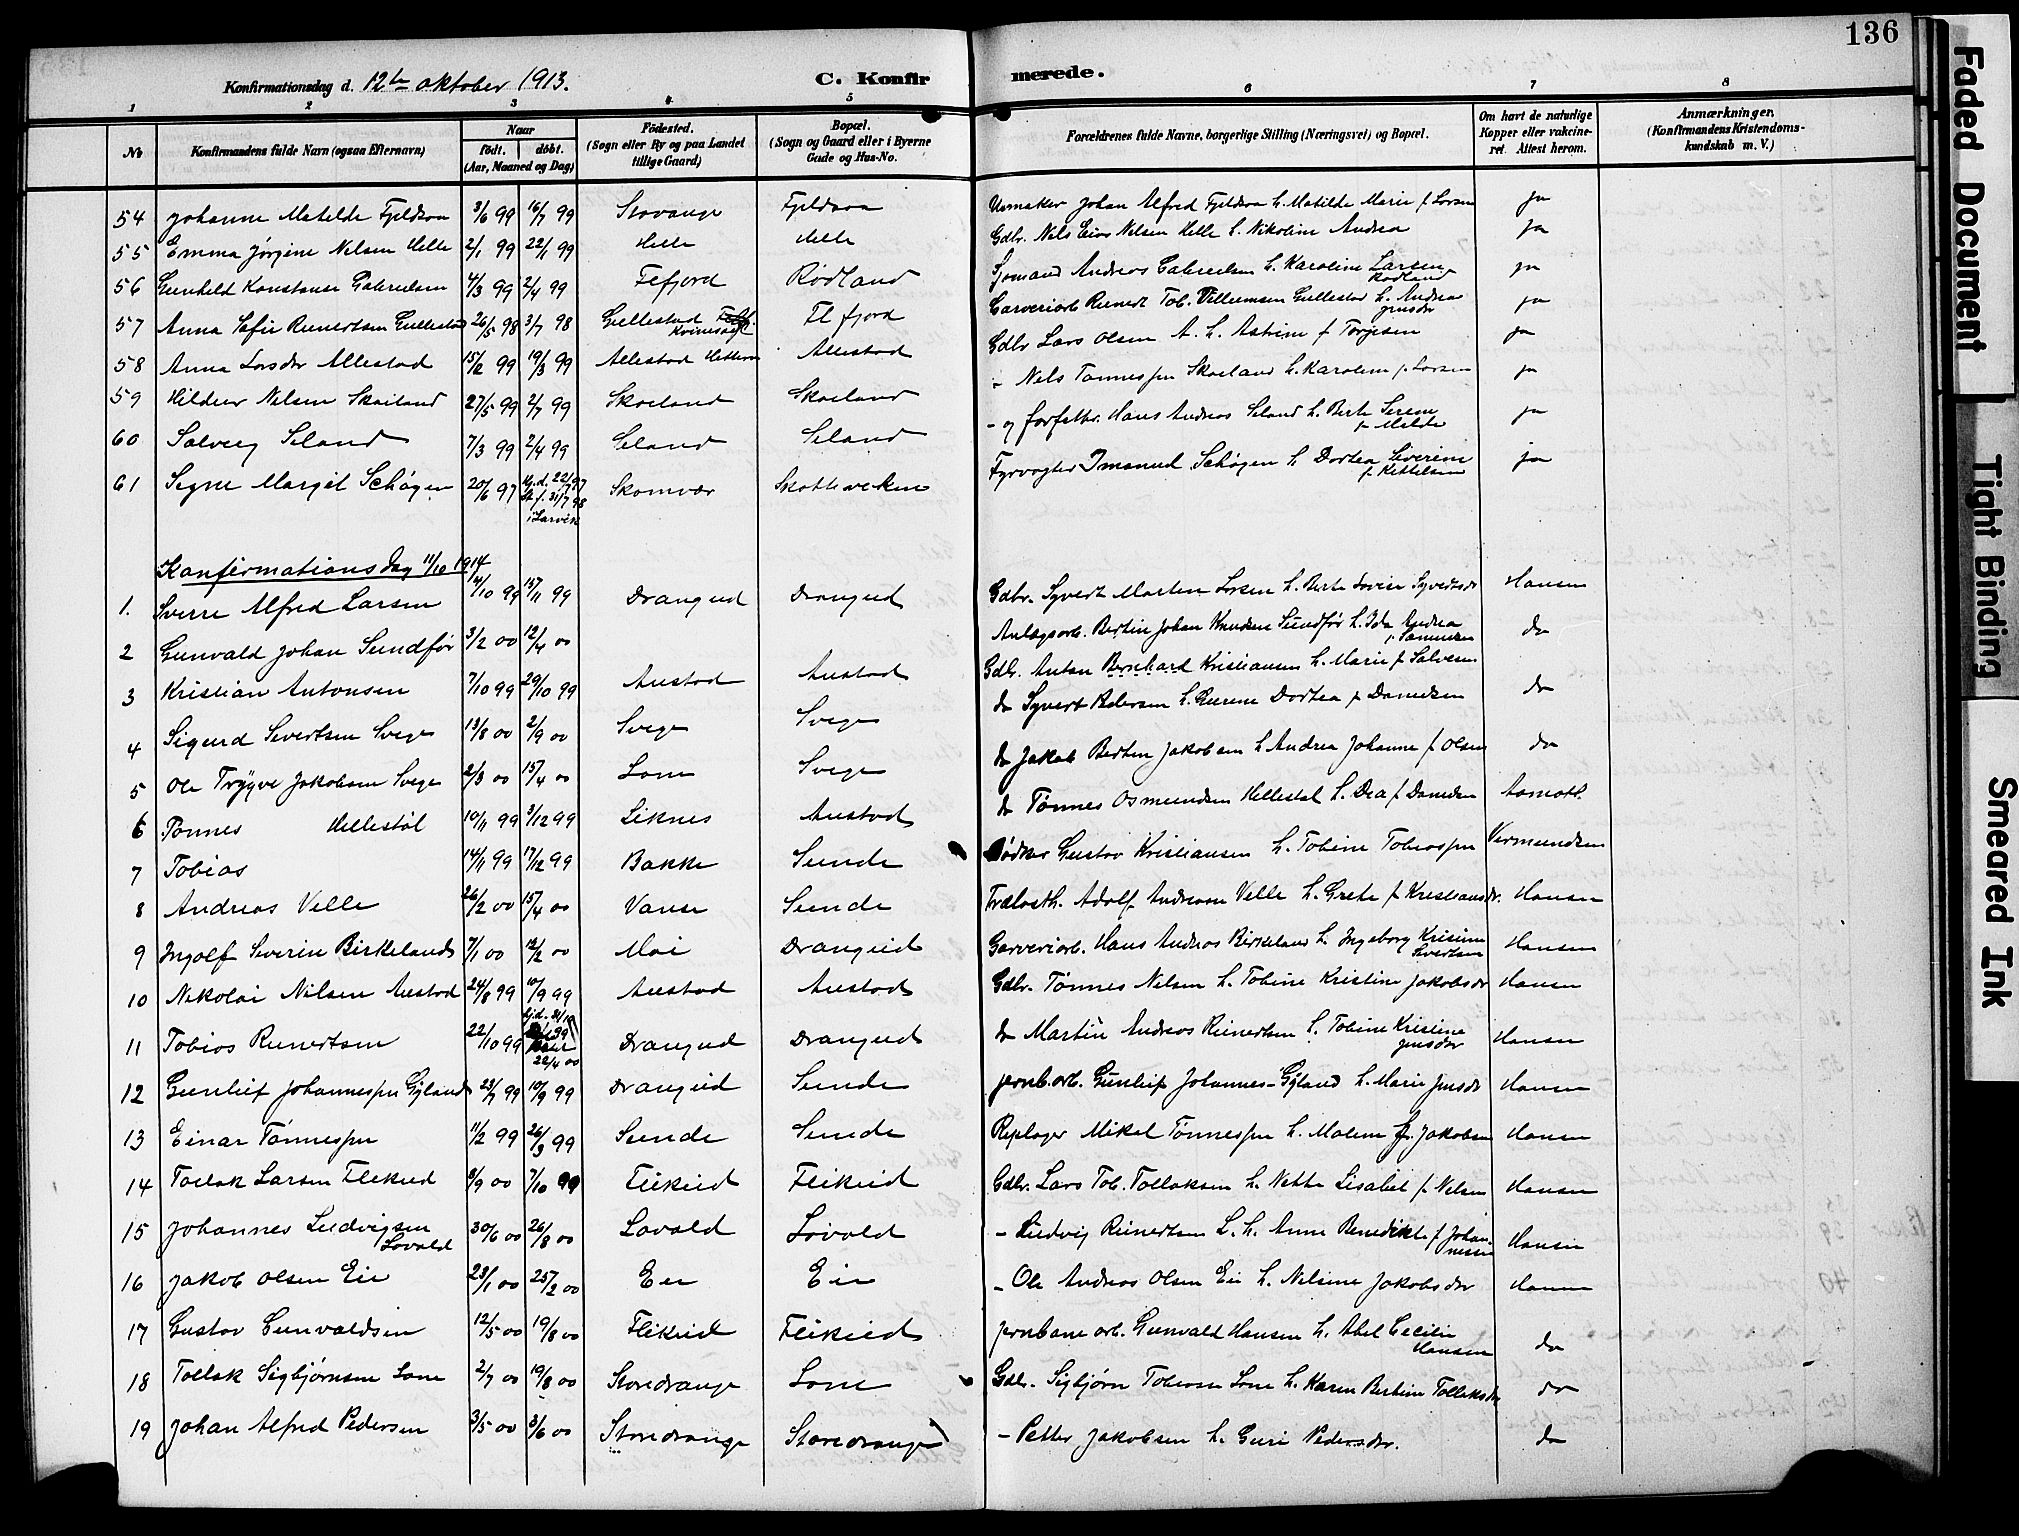 136
Konfirmationsdag d. 12te oktober 1913.
C. Konfir merede.
1 2 3 4 5 6 7 8
No
Konfirmandens fulde Navn (ogsaa Efternavn)
Naar
født. døbt.
(Aar, Maaned og Dag)
Fødested.
(Sogn eller By og paa Landet
tillige Gaard)
Bopæl.
(Sogn og Gaard eller i Byerne
Gade og Hus-No.
Forældrenes fulde Navne, borgerlige Stilling (Næringsvei) og Bopæl.
Om havt de naturlige
Kopper eller vakcine-
ret. Attest herom.
Anmærkninger.
(Konfirmandens Kristendoms-
kundskab m. V.)
54 Johanne Matilde Fjeldsaa 3/6 99 16/7 99 Stavanger Fjeldsaa Urmaker Johan Alfred Fjeldsaa h. Matilde Marie f. Larsen ja
55 Emma Jørgine Nilsen Helle 2/1 99 22/1 99 Helle Helle Gdbr. Nels Eias Nelsen Helle h. Nikoline Andrea ja
56 Gunhild Konstanse Gabrielsen 4/3 99 2/4 99 Fefjord Rødland Sjømand Andreas Gabrielsen h. Karoline Larsen Rødland ja
57 Anna Sofie Reinertsen Gullestad 26/5 98 3/7 98 Gullestad Flfjord Garveriarb. Reinert Tob. Villumsen Gullestad h. Andrea Jensdr ja
58 Anna Larsdr Allestad 15/2 99 19/3 99 Allestad Allestad Gdbr Lars Olsen A. h. Astrine f. Torjesen ja
59 Hildur Nilsen Skailand 27/5 99 2/7 99 Skaeland Skaeland - Nels Tønnespn Skaeland h. Karoline f. Larsen ja
60 Solveig Seland 7/3 99 2/4 99 Seland Seland - og forfatter. Hans Andreas Seland h. Berte Serine f. Milde ja
61 Signe Margit Schøgen 20/6 97 Hj.d. 22/7 97 St. f. 31/7 98 i Larvik Skomvær Fyrvogter Imanuel Schøgen h. Dortea Severine f. Kettelsen ja
Konfirmationsdag 11/10 1914
1. Sverre Alfred Larsen 14/10 99 15/11 99 Drangeid Drangeid Gdbr. Syvert Martin Larsen h. Berte Lovise Syvertsdr Hansen
2 Gunvald Johan Sundfør 3/2 00 12/4 00 Anlægsarb. Bertin Johan Knudsen Sundfør h. Ida Andrea do
3 Kristian Antonsen 7/10 99 29/10 99 Austad Austad Gdbr. Anton Bernhard Kristiansen h. Marie f. Salvesen do
4 Sigurd Sivertsen Svege 13/8 00 2/9 00 Svege Svege do Syvert Pedersen h. Gurine Dortea f. Danielsen
5 Ole Trygve Jakobsen Svege 2/3 00 15/4 00 Lone Svege do Jakob Bertin Jakobsen h. Andrea Johanne f. Olsen do
6 Tønnes Hellestøl 10/11 99 3/12 99 Liknes Austad do Tønnes Osmundsen Hellestøl h. Dea f. Danielsen Aamoth.
7 Tobias 14/11 99 17/12 99 Bakke Sunde Bødker Gustav Kristiansen h. Tobine Tobiaspn Vermundsen
8 Andreas Velle 26/2 00 15/4 00 Vanse Sunde Trælasth. Adolf Andreasen Velle h. Grete f. Kristiansdr. Hansen
9 Ingolf Severin Birkeland 7/1 00 12/2 00 Moi Drangeid Garveriarb. Hans Andreas Birkeland h. Ingeborg Kristine Sivertsen Hansen
10 Nikolai Nilsen Austad 24/8 99 10/9 99 Austad Austad Gdbr. Tønnes Nilsen h. Tobine Kristine Jakobsdr Hansen
11 Tobias Reinertsen 22/10 99 hj.d. 31/10 99 22/4 00 Drangeid Drangeid do Martin Andreas Reinertsen h. Tobine Kristine Jensdr Hansen
12 Gunleif Johannespn Gyland 23/7 99 10/9 99 Drangeid Sunde jernb.arb. Gunleif Johannes-Gyland h. Marie Jensdr Hansen
13 Einar Tønnespn 11/2 99 26/3 99 Sunde Sunde Repslager Mikal Tønnespn h. Malene f. Jakobsen Hansen
14 Tollak Larsen Flikeid 8/9 00 7/10 99 Flikeid Flikeid Gdbr. Lars Tob. Tollaksen h. Nette Lisabet f. Nilsen Hansen
15 Johannes Ludvigsen Lovald 30/6 00 26/8 00 Lovald Lovald - Ludvig Reinertsen L. h. Anne Benedikte f. Johannessen Hansen
16 Jakob Olsen Eie 23/1 00 25/2 00 Eie Eie - Ole Andreas Olsen Eie h. Nilsine Jakobsdr Hansen
17 Gustav Gunvaldsen 12/5 00 19/8 00 Flikeid Flikeid Jernbane arb. Gunvald Hansen h. Abel Cecilie Hansen do
18 Tollak Sigbjørnsen Lone 2/7 00 19/8 00 Storedrange Lone Gdbr. Sigbjørn Tobiasen Lone h. Karen Bertine Tollaksdr do
19 Johan Alfred Pedersen 3/5 00 3/6 00 Storedrange Storedrange - Petter Jakobsen h. Guri Pedersdr. do
Faded Document
Tight Binding
Smeared Ink